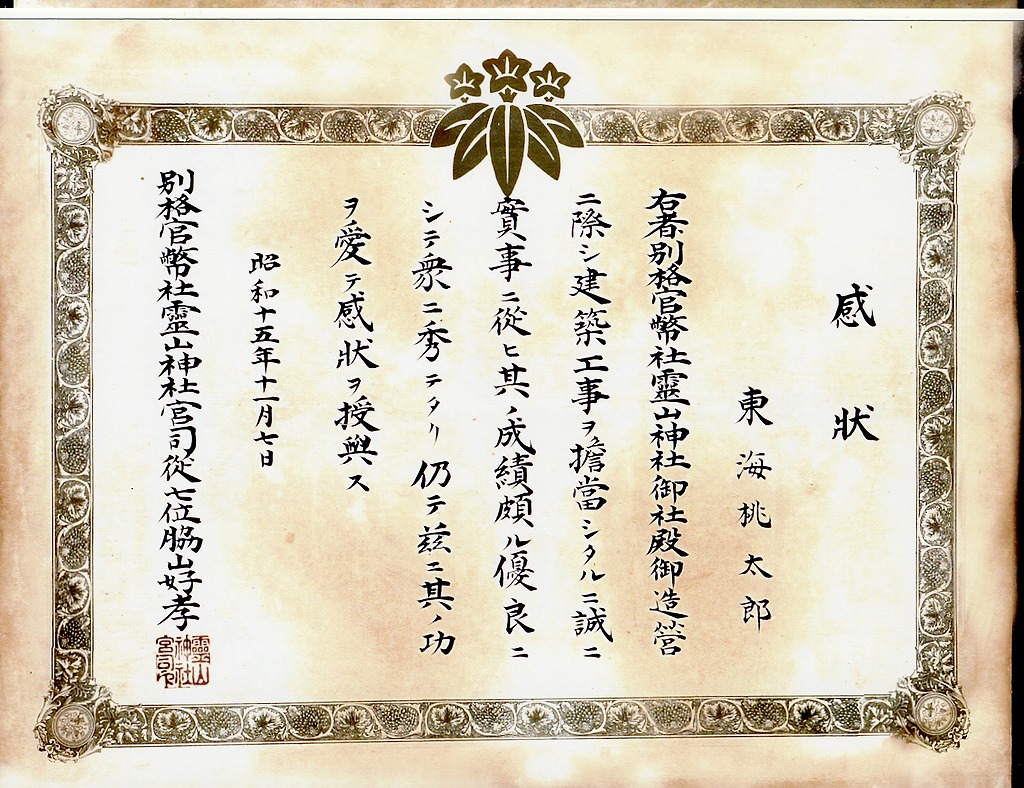 感狀
東海桃太郎
右者別格官幣社靈山神社御社殿御造營
ニ際シ建築工事ヲ擔當シタルニ誠ニ
實事ニ從ヒ其ノ成績頗ル優良ニ
シテ衆ニ秀テタリ仍テ茲ニ其ノ功
ヲ愛テ感狀ヲ授與ス
昭和十五年十一月七日
別格官幣社靈山神社宮司從七位脇山好孝
靈山
神社
宮司印